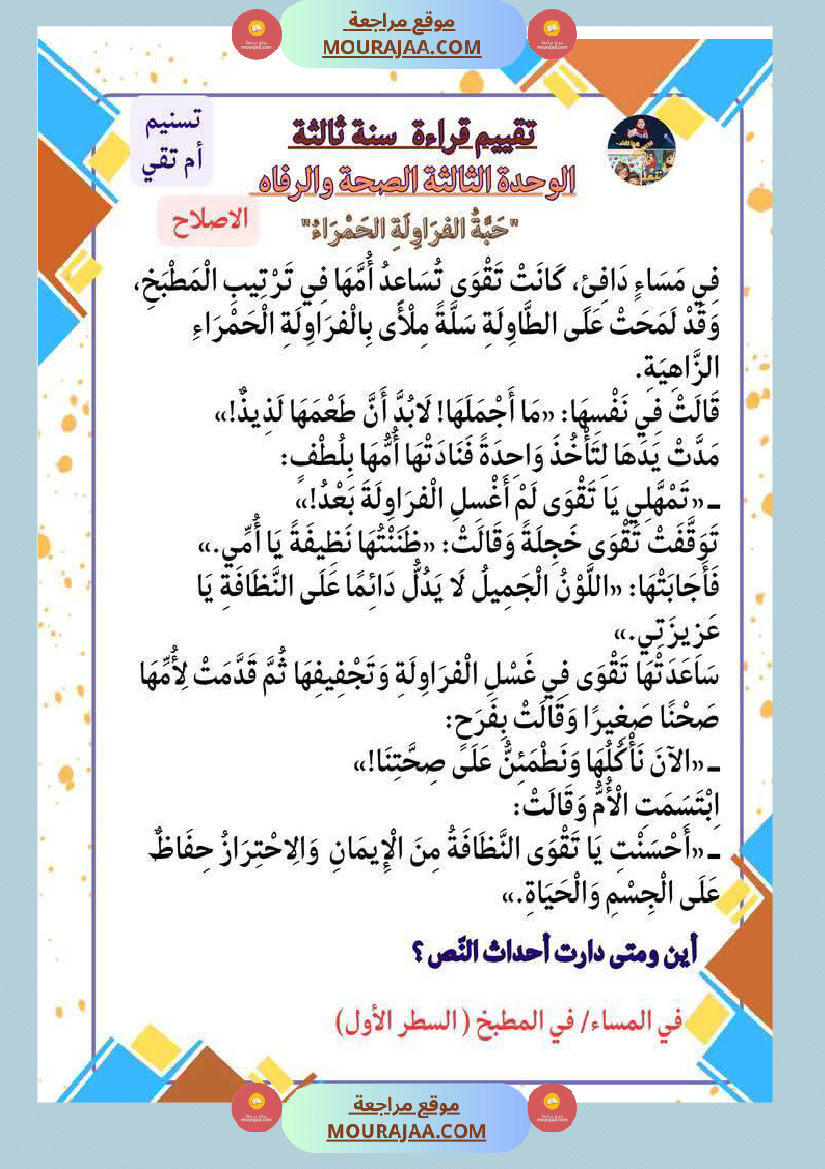 موقع مراجعة
MOURAJAA.COM
تسنيم
أم تقي
تقييم قراءة سنة ثالثة
الوحدة الثالثة الصحة والرفاه
الاصلاح
"حَبَّةُ الفرَاوِلَةِ الحَمْرَاءُ"
فِي مَسَاءٍ دَافِئٍ، كَانَتْ تَقْوَى تُسَاعِدُ أُمَّهَا فِي تَرْتِيبِ الْمَطْبَخِ،
وَقَدْ لَمَحَتْ عَلَى الطَّاوِلَةِ سَلَّةً مِلْأَى بِالْفرَاوِلَةِ الْحَمْرَاءِ
الزَّاهِيَةِ.
قَالَتْ فِي نَفْسِهَا: «مَا أَجْمَلَهَا! لَابُدَّ أَنَّ طَعْمَهَا لَذِيذٌ!»
مَدَّتْ يَدَهَا لِتَأْخُذَ وَاحِدَةً فَنَادَتْهَا أُمُّهَا بِلُطْفٍ:
ـ «تَمْهَّلِي يَا تَقْوَى لَمْ أَغْسِلِ الْفرَاوِلَةَ بَعْدُ!»
تَوَقَّفَتْ تَقْوَى خَجِلَةً وَقَالَتْ: «ظَنَنْتُهَا نَظِيفَةً يَا أُمِّي.»
فَأَجَابَتْهَا: «اللَّوْنُ الْجَمِيلُ لَا يَدُلُّ دَائِمًا عَلَى النَّظَافَةِ يَا
عَزِيزَتِي.»
سَاعَدَتْهَا تَقْوَى فِي غَسْلِ الْفرَاوِلَةِ وَتَجْفِيفِهَا ثُمَّ قَدَّمَتْ لِأُمِّهَا
صَحْنًا صَغِيرًا وَقَالَتْ بِفَرَحٍ:
ـ «الآنَ نَأْكُلُهَا وَنَطْمَئِنُّ عَلَى صِحَّتِنَا!»
اِبْتَسَمَتِ الْأُمُّ وَقَالَتْ:
ـ «أَحْسَنْتِ يَا تَقْوَى النَّظَافَةُ مِنَ الْإِيمَانِ وَالِاحْتِرَازُ حِفَاظٌ
عَلَى الْجِسْمِ وَالْحَيَاةِ.»
أين ومتى دارت أحداث النّص ؟
في المساء/ في المطبخ ( السطر الأول)
موقع مراجعة
MOURAJAA.COM